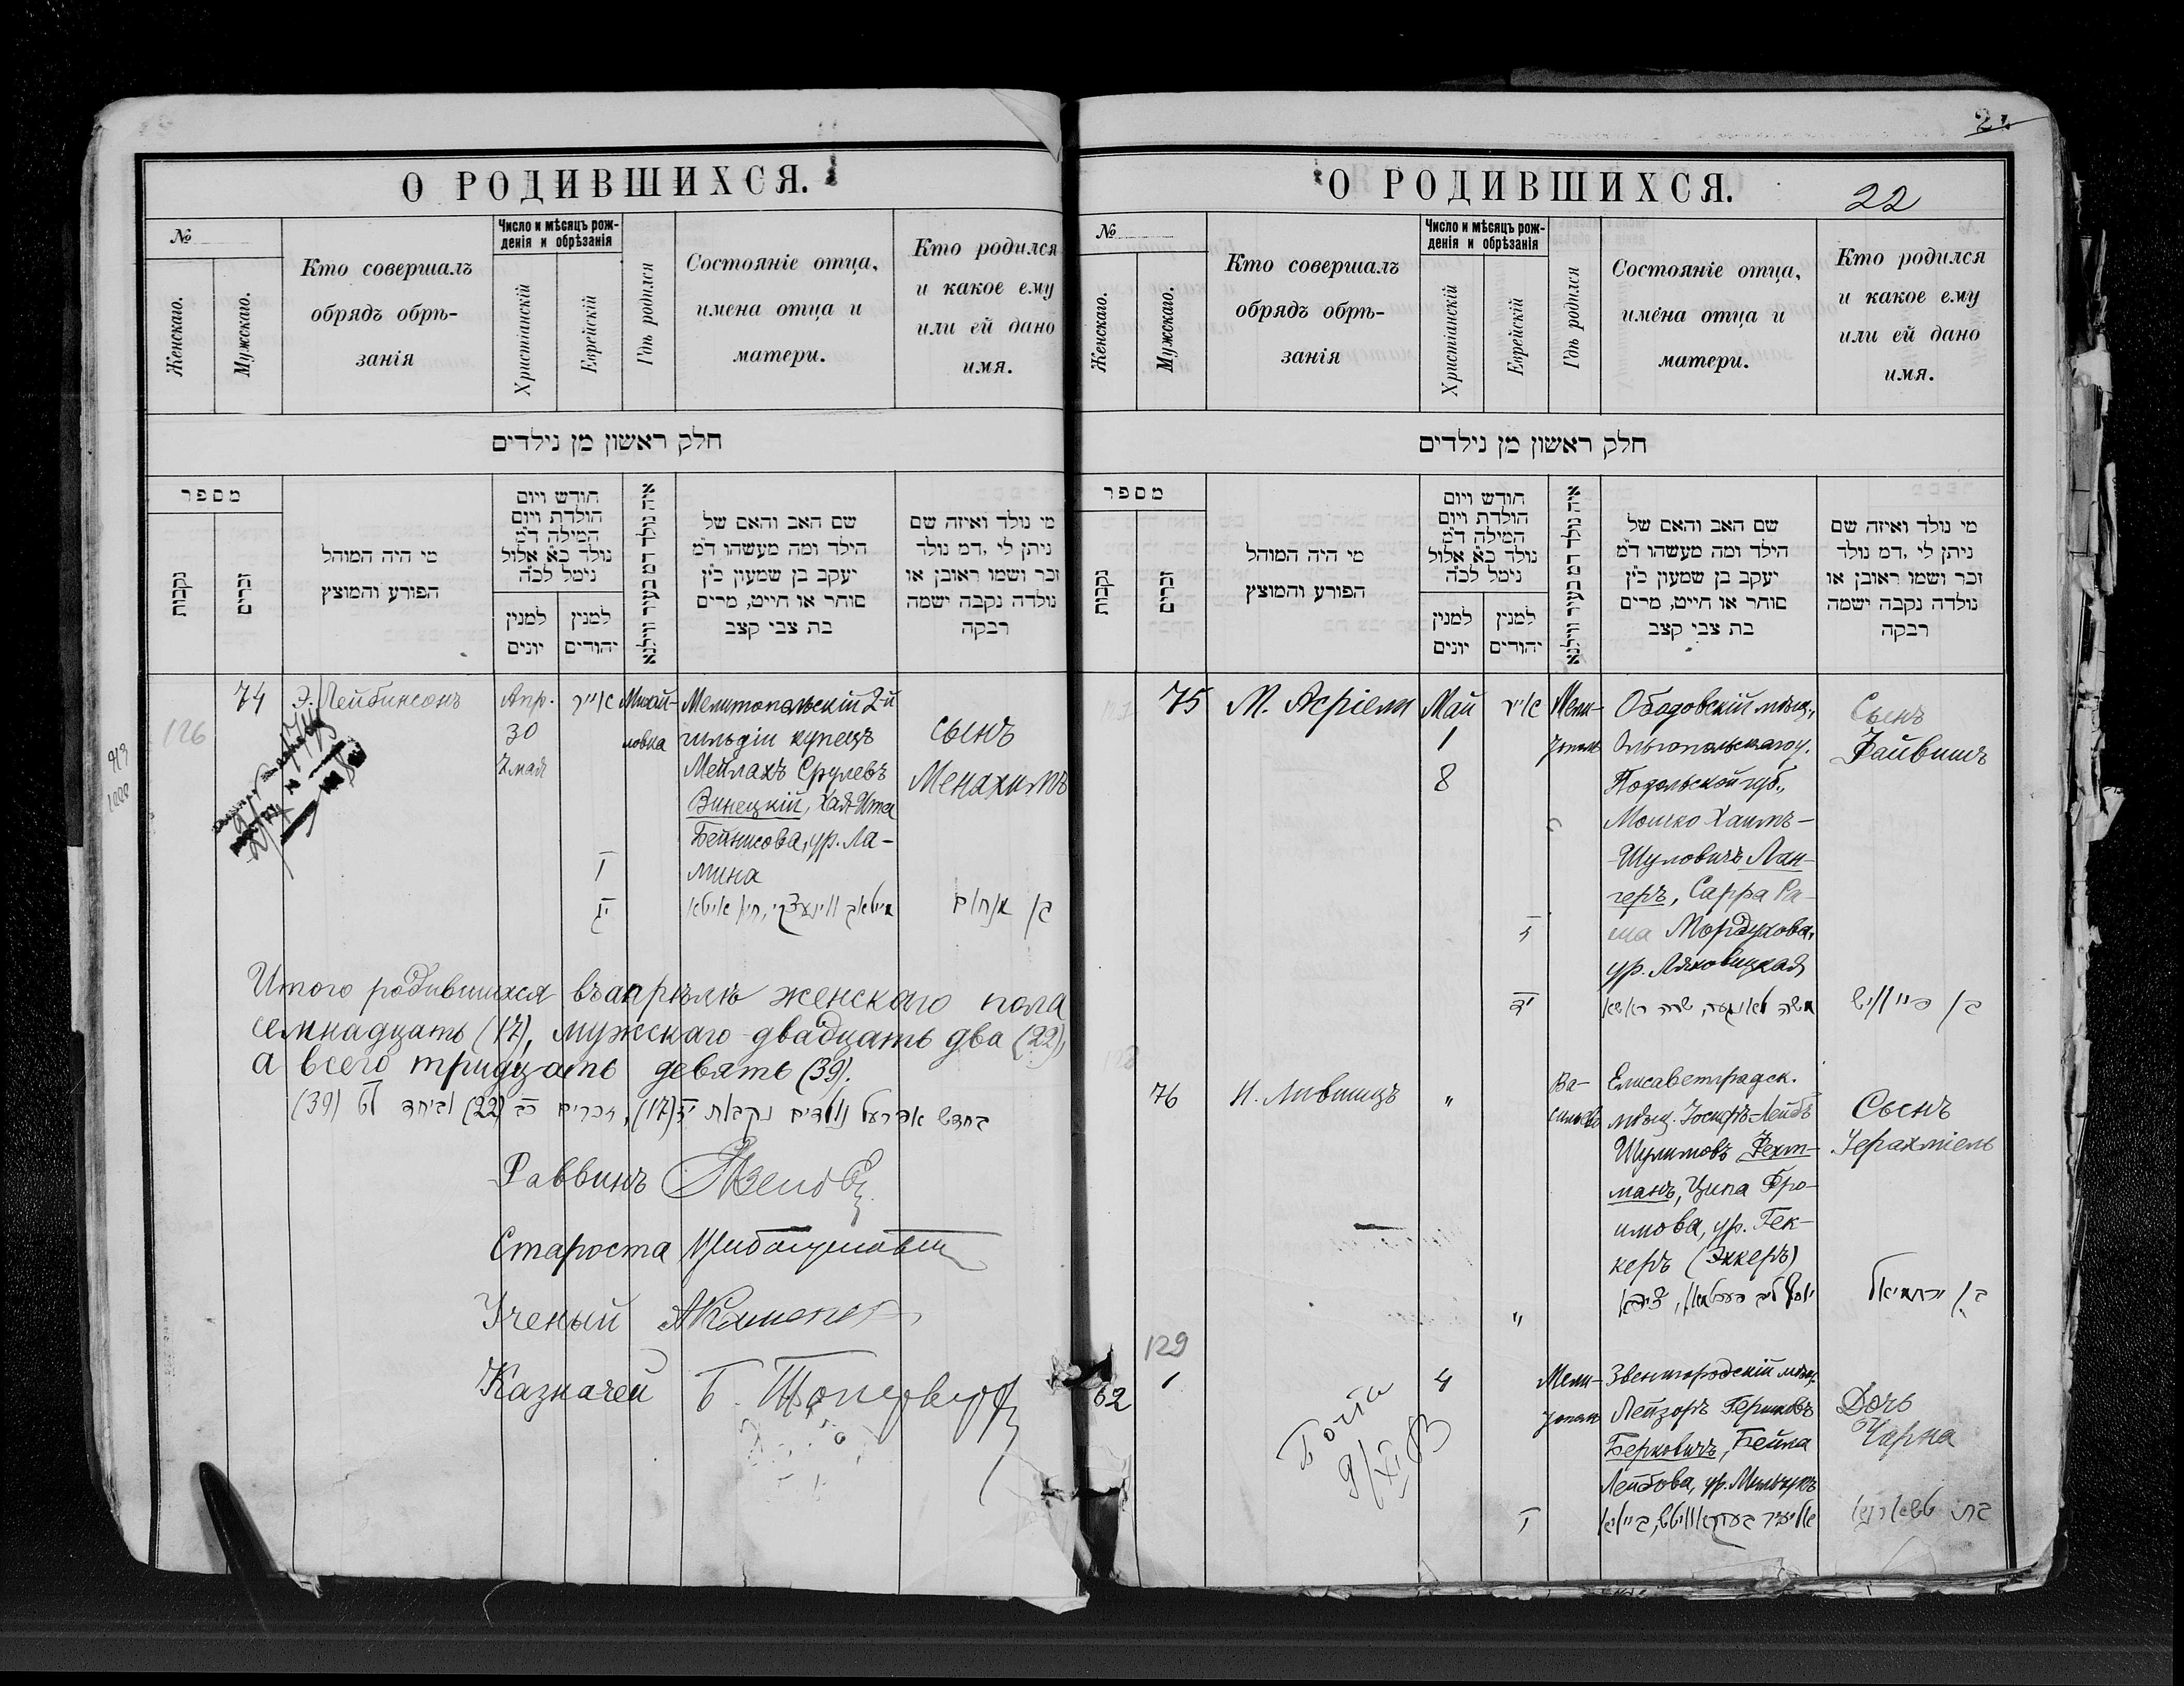 О РОДИВШИХСЯ.
№
Женскаго.
Мужскаго.
Кто совершалъ
обрядъ обрѣ-
занія
Число и мѣсяцъ рож-
денія и обрѣзанія
Христіанскій
Еврейскій
Гдѣ родился
Состояніе отца,
имена отца и
матери.
Кто родился
и какое ему
или ей дано
имя.
חלק ראשון מן נילדים
מספר
נקבות
זכרים
מי היה המוהל
הפורע והמוצץ
חודש ויום
הולדת ויום
המילה ד״מ
נולד כ״א אלול
נימל לכ״ה
למנין
יונים
למנין
יהודים
איה נולד ד״מ בעיר ווילנא
שם האב והאם של
הילד ומה מעשהו ד״מ
יעקב בן שמעון כ״ץ
סוחר או חייט, מרים
בת צבי קצב
מי נולד ואיזה שם
ניתן לי ,דמ נולד
זכר ושמו ראובן או
נולדה נקבה ישמה
רבקה
126
74
Э. Лейбинсонъ
Апр.
30
7 мая
אייר
Михай-
ловка
Мелитопольскій 2-й
гильдіи купецъ
Мейлахъ Срулевъ
Винецкій, Хая-Ита
Бейнисова, ур. Ла-
мина
сынъ
Менахимъ
בן מנחום
Итого родившихся въ апрѣлѣ женскаго пола
семнадцать (17), мужскаго двадцать два (22),
а всего тридцать девять (39).
בחדש אפריל נולדים נקבות יז (17), זכרים כב (22) וביחד לט (39)
Раввинъ
Староста
Ученый
Казначей Б.
О РОДИВШИХСЯ.
22
№
Женскаго.
Мужскаго.
Кто совершалъ
обрядъ обрѣ-
занія
Число и мѣсяцъ рож-
денія и обрѣзанія
Христіанскій
Еврейскій
Гдѣ родился
Состояніе отца,
имена отца и
матери.
Кто родился
и какое ему
или ей дано
имя.
חלק ראשון מן נילדים
מספר
נקבות
זכרים
מי היה המוהל
הפורע והמוצץ
חודש ויום
הולדת ויום
המילה ד״מ
נולד כ״א אלול
נימל לכ״ה
למנין
יונים
למנין
יהודים
איה נולד ד״מ בעיר ווילנא
שם האב והאם של
הילד ומה מעשהו ד״מ
יעקב בן שמעון כ״ץ
סוחר או חייט, מרים
בת צבי קצב
מי נולד ואיזה שם
ניתן לי ,דמ נולד
זכר ושמו ראובן או
נולדה נקבה ישמה
רבקה
75
М. Асріели
Май
1
8
איר
יד
Мели-
тополь
Ободовскій мѣщ.,
Ольгопольскаго у.
Подольской губ.,
Мошко Хаимъ-
-Шуловичъ Лан-
геръ, Сарра Ра-
ша Мордухова,
ур. Ляховицкая
Сынъ
Файвишъ
בן פייוויש
76
И. Лившицъ
"
"
Ва-
Елисаветградск.
мѣщ. Іосифъ-Лейбъ
Шулимовъ Фехт-
манъ, Ципа Фро-
имова, ур. Гек-
керъ (Эккеръ)
Сынъ
Іерахміель
בן ירחמיאל
129
62
4
Мели-
тополь
Звенигородскій мѣщ.
Лейзоръ Гершковъ
Берковичъ, Бейла
Лейбова, ур.
Дочь
Чарна
9/XI 03